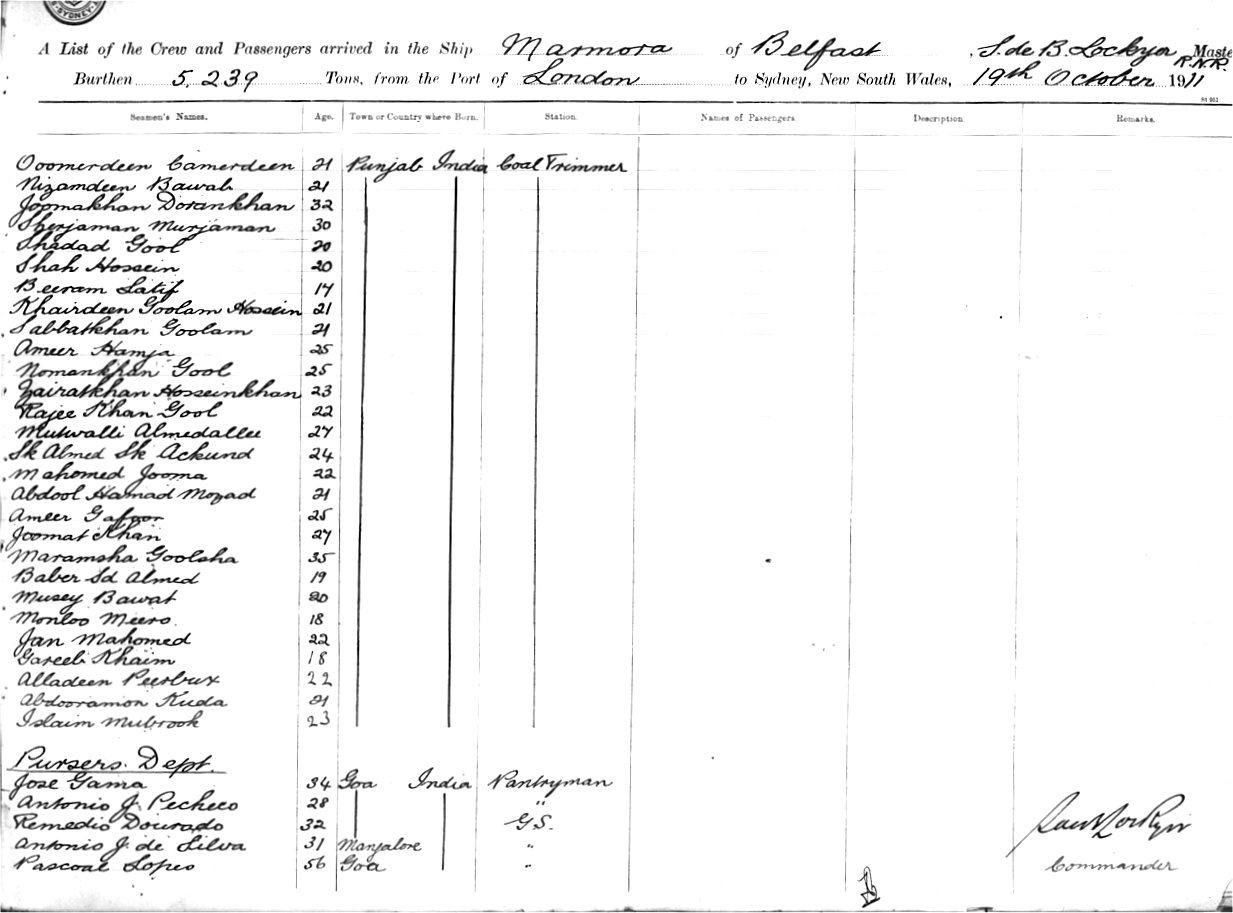 SYDNEY
A List of the Crew and Passengers arrived in the Ship Marmora of Belfast, S. de B. Lockyer R.N.R. Maste
Burthen 5,239 Tons, from the Port of London to Sydney, New South Wales, 19th October 1911
Seamen's Names. Age. Town or Country where Born. Station. Names of Passengers Description Remarks.
Ooomerdeen Camerdeen 21 Punjab India Coal Trimmer
Nizamdeen Bawab 21
Joomakhan Dorankhan 32
Sherjaman Murjaman 30
Shadad Gool 20
Shah Hossein 20
Beeram Latif 17
Khairdeen Goolam Hossein 21
Sabbatkhan Goolam 21
Ameer Hamja 25
Nomankhan Gool 25
Zairatkhan Hosseinkhan 23
Rajee Khan Gool 22
Mutwalli Almedallee 27
Sk Almed Sk Ackund 24
Mahomed Jooma 22
Abdool Hamad Mozad 21
Ameer Gafoor 25
Joomat Khan 27
Maramsha Goolsha 35
Baber Sd Almed 19
Musey Bawat 20
Monloo Meero. 18
Jan Mahomed 22
Gareeb Khaim 18
Alladeen Peerbux 22
Abdooramon Kuda 21
Islaim Mubrook 23
Pursers. Dept.
Jose Gama 34 Goa India Pantryman
Antonio J. Pecheco 28 "
Remedio Dourado 32 G.S.
Antonio J. de Silva 31 Manjalore "
Pascoal Lopes 56 Goa "
Commander